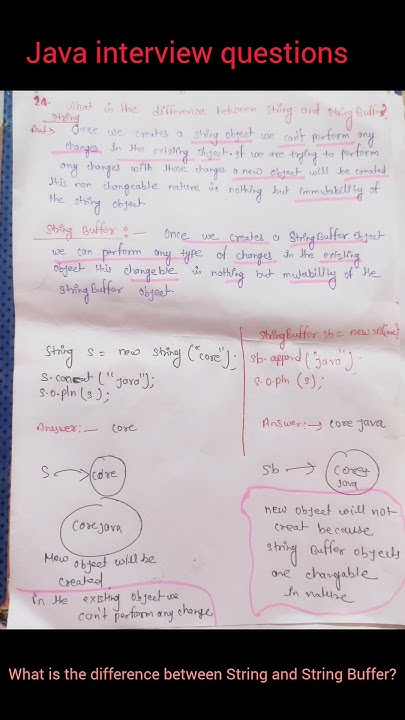 Java interview questions
20. What is the difference between String and String Buffer?
String
Ans:- Once we creates a string object we can't perform any
changes in the existing object. If we are trying to perform
any changes with those changes a new object will be created
this non changeable nature is nothing but immutability of
the string object.
String Buffer :- Once we creates a StringBuffer object
we can perform any type of changes in the existing
object this changeble is nothing but mutability of the
StringBuffer object.
String s = new string ("core");
s.concat ("java");
s.o.pln (s);
Answer:- core
S core
corejava
New object will be
created.
in the existing object we
can't perform any change
StringBuffer sb = new
sb.append ("java");
s.o.pln (s);
Answer:- core java
Sb core
java
new object will not
creat because
string Buffer objects
are changable
in nature
What is the difference between String and String Buffer?